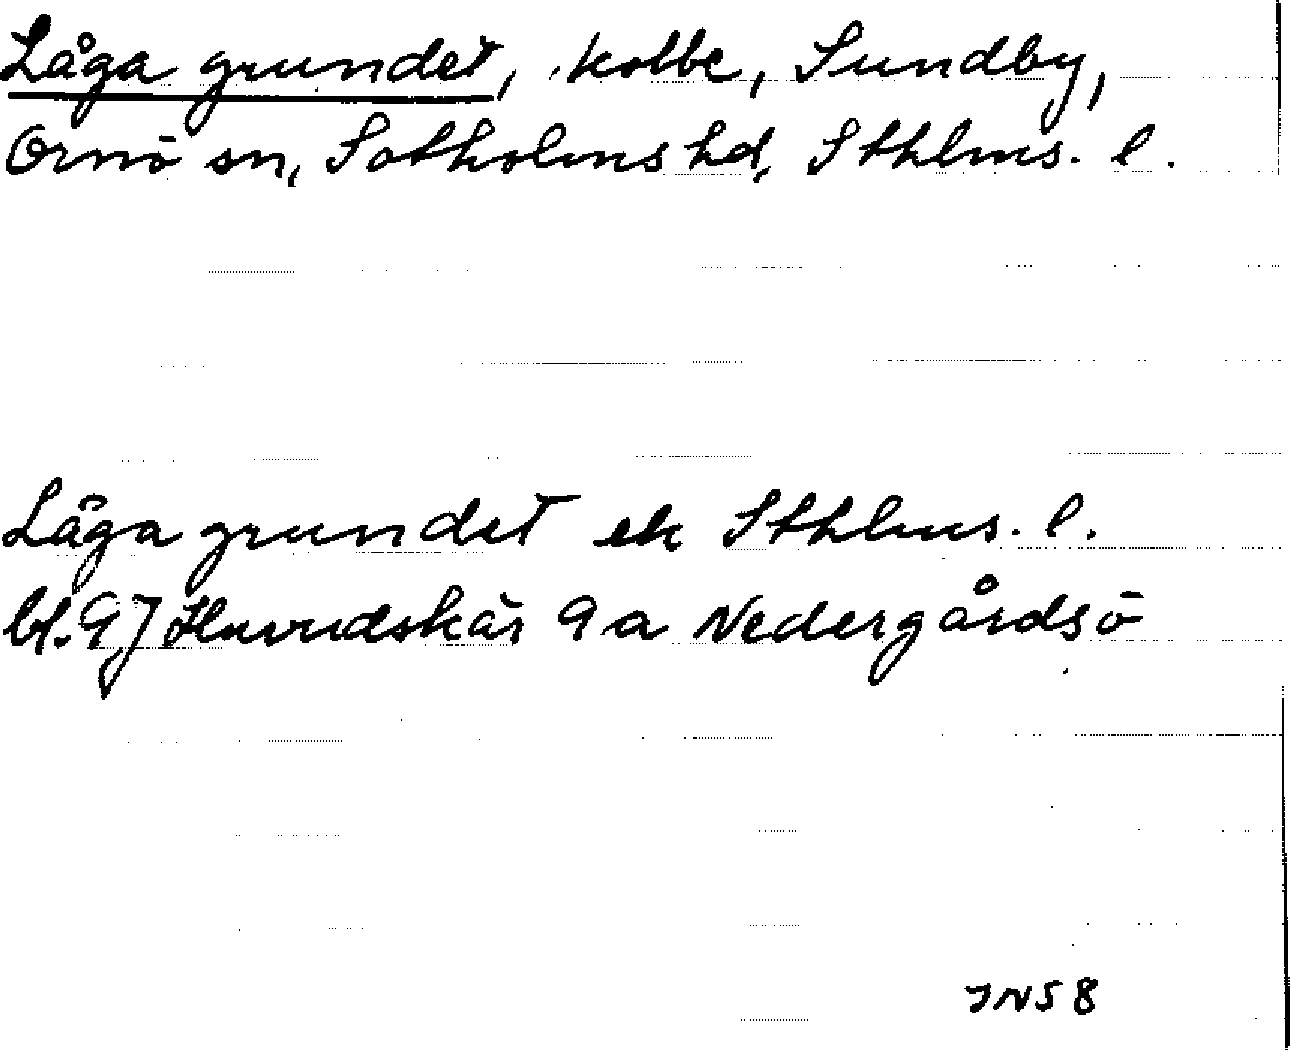 Låga grundet, kobbe, Sundby,
Ornö sn, Sotholms hd, Sthlms. l.
Låga grundet ek Sthlms. l.
bl. 97 Huvudskär 9 a Nedergårdsö
INS 8